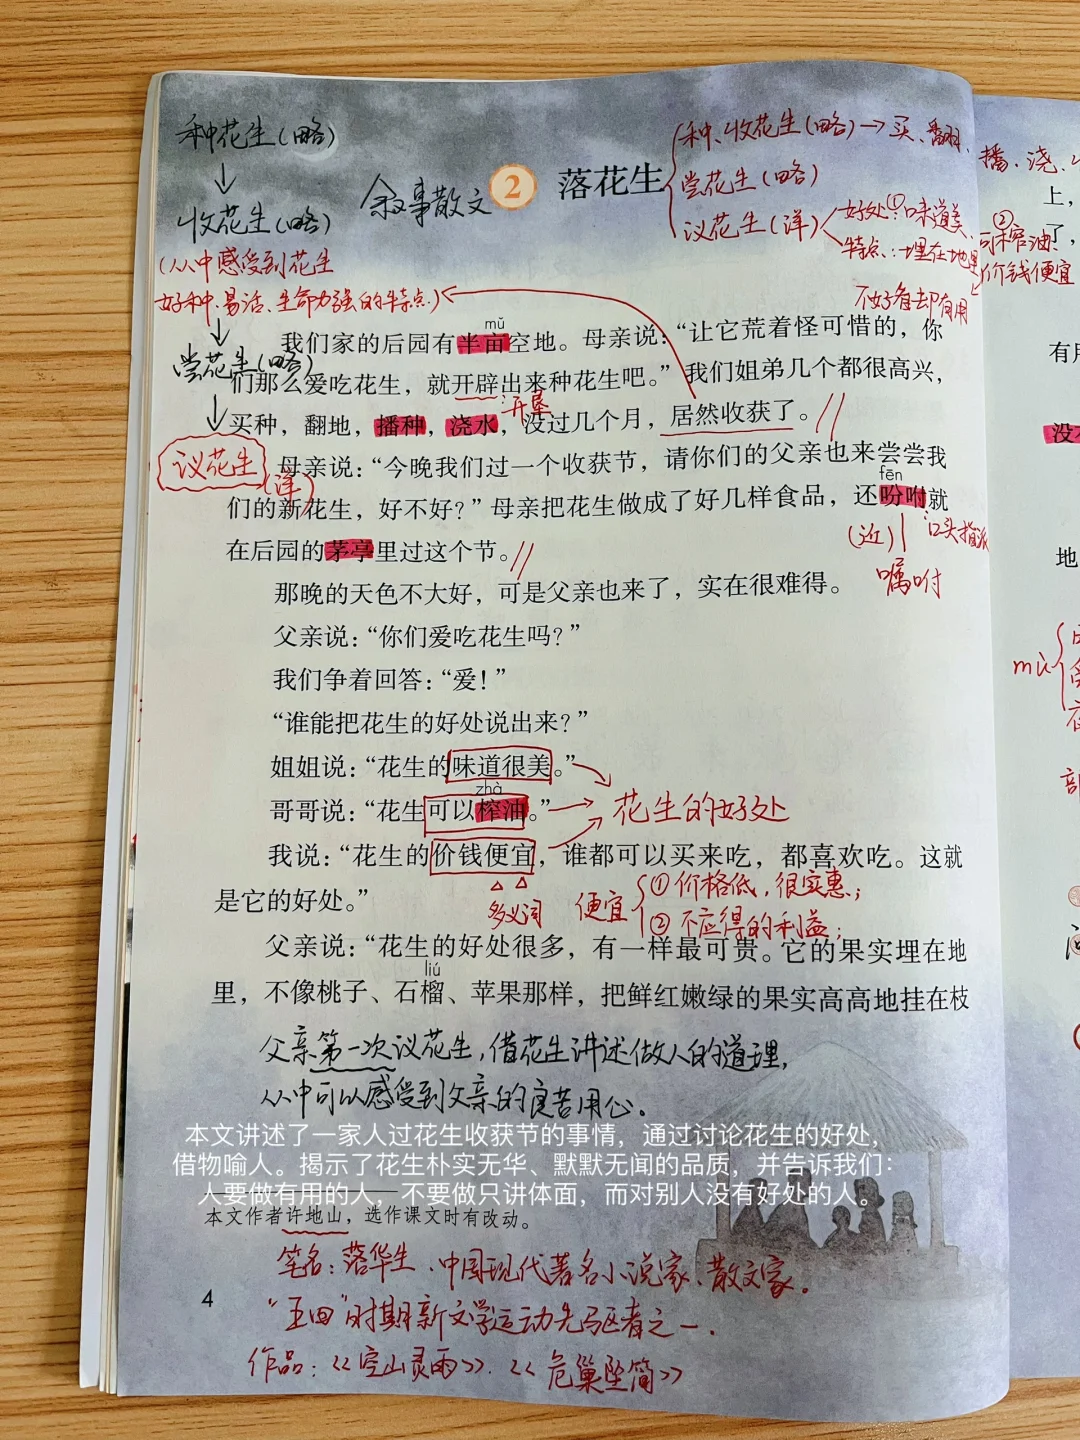 种花生(略)
↓
收花生(略)
(从中感受到花生
好种、易活、生命力强的特点)
↓
尝花生(略)
↓
议花生
(详)
叙事散文
2 落花生
种、收花生(略)→买、翻、
播、浇、
尝花生(略)
议花生(详)
好处:①味道美
②可榨油
价钱便宜
特点:埋在地里
不好看却有用
mǔ
我们家的后园有半亩空地。母亲说:“让它荒着怪可惜的,你
们那么爱吃花生,就开辟出来种花生吧。”我们姐弟几个都很高兴,
开垦
买种,翻地,播种,浇水,没过几个月,居然收获了。
母亲说:“今晚我们过一个收获节,请你们的父亲也来尝尝我
fēn
们的新花生,好不好?”母亲把花生做成了好几样食品,还吩咐就
(近)
口头指派
嘱咐
在后园的茅亭里过这个节。
那晚的天色不大好,可是父亲也来了,实在很难得。
父亲说:“你们爱吃花生吗?”
我们争着回答:“爱!”
“谁能把花生的好处说出来?”
姐姐说:“花生的味道很美。”
zhà
哥哥说:“花生可以榨油。”
花生的好处
我说:“花生的价钱便宜,谁都可以买来吃,都喜欢吃。这就
是它的好处。”
多义词
便宜
①价格低,很实惠;
②不应得的利益;
父亲说:“花生的好处很多,有一样最可贵。它的果实埋在地
liú
里,不像桃子、石榴、苹果那样,把鲜红嫩绿的果实高高地挂在枝
父亲第一次议花生,借花生讲述做人的道理,
从中可以感受到父亲的良苦用心。
本文讲述了一家人过花生收获节的事情,通过讨论花生的好处,
借物喻人。揭示了花生朴实无华、默默无闻的品质,并告诉我们:
人要做有用的人,不要做只讲体面,而对别人没有好处的人。
本文作者许地山,选作课文时有改动。
笔名:落华生、中国现代著名小说家、散文家.
“五四”时期新文学运动先驱者之一.
作品:《空山灵雨》.《危巢坠简》
4
上,
了,
有用
没
地
mù